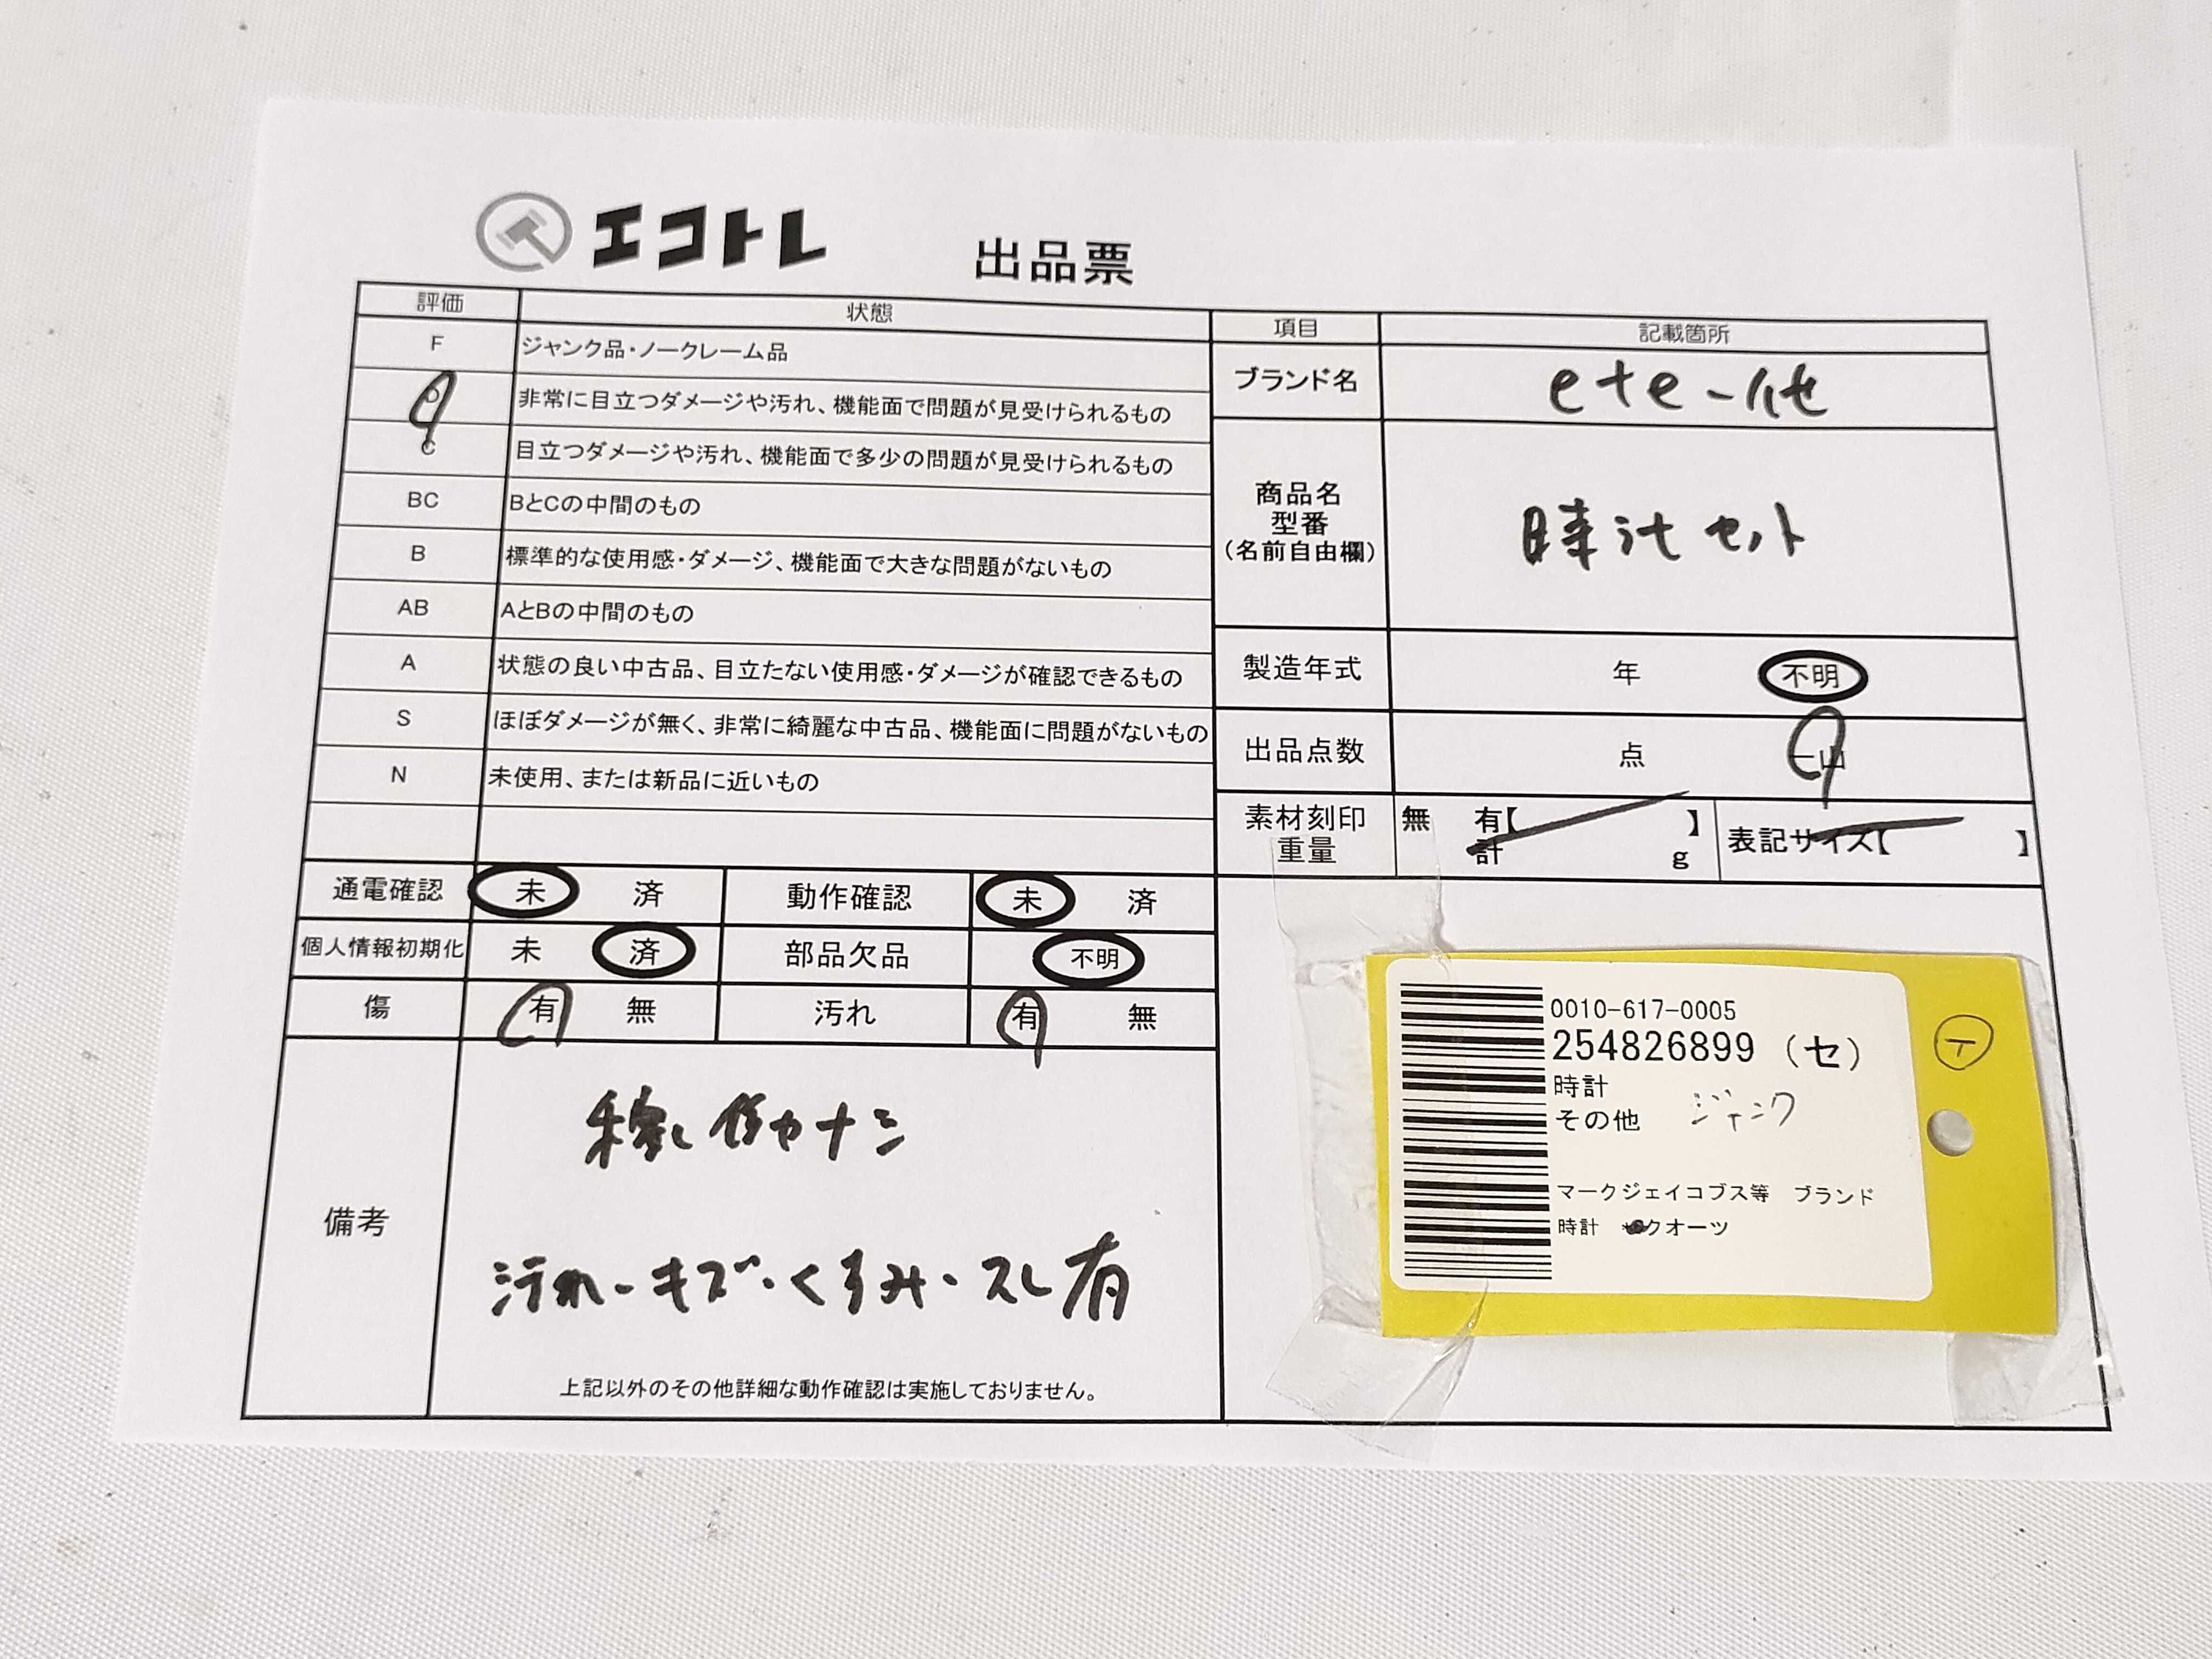 エコトレ
出品票
評価 状態
F ジャンク品・ノークレーム品
D 非常に目立つダメージや汚れ、機能面で問題が見受けられるもの
C 目立つダメージや汚れ、機能面で多少の問題が見受けられるもの
BC BとCの中間のもの
B 標準的な使用感・ダメージ、機能面で大きな問題がないもの
AB AとBの中間のもの
A 状態の良い中古品、目立たない使用感・ダメージが確認できるもの
S ほぼダメージが無く、非常に綺麗な中古品、機能面に問題がないもの
N 未使用、または新品に近いもの
項目 記載箇所
ブランド名 ete-他
商品名
型番
(名前自由欄)
時計セット
製造年式 年 不明
出品点数 点 一山
素材刻印 無 有【 】
重量 計 g
表記サイズ【 】
通電確認 未 済 動作確認 未 済
個人情報初期化 未 済 部品欠品 不明
傷 有 無 汚れ 有 無
備考
汚れ・キズ・くすみ・スレ有
上記以外のその他詳細な動作確認は実施しておりません。
0010-617-0005
254826899 (セ)
時計
その他 ジャンク
マークジェイコブス等 ブランド
時計 クオーツ